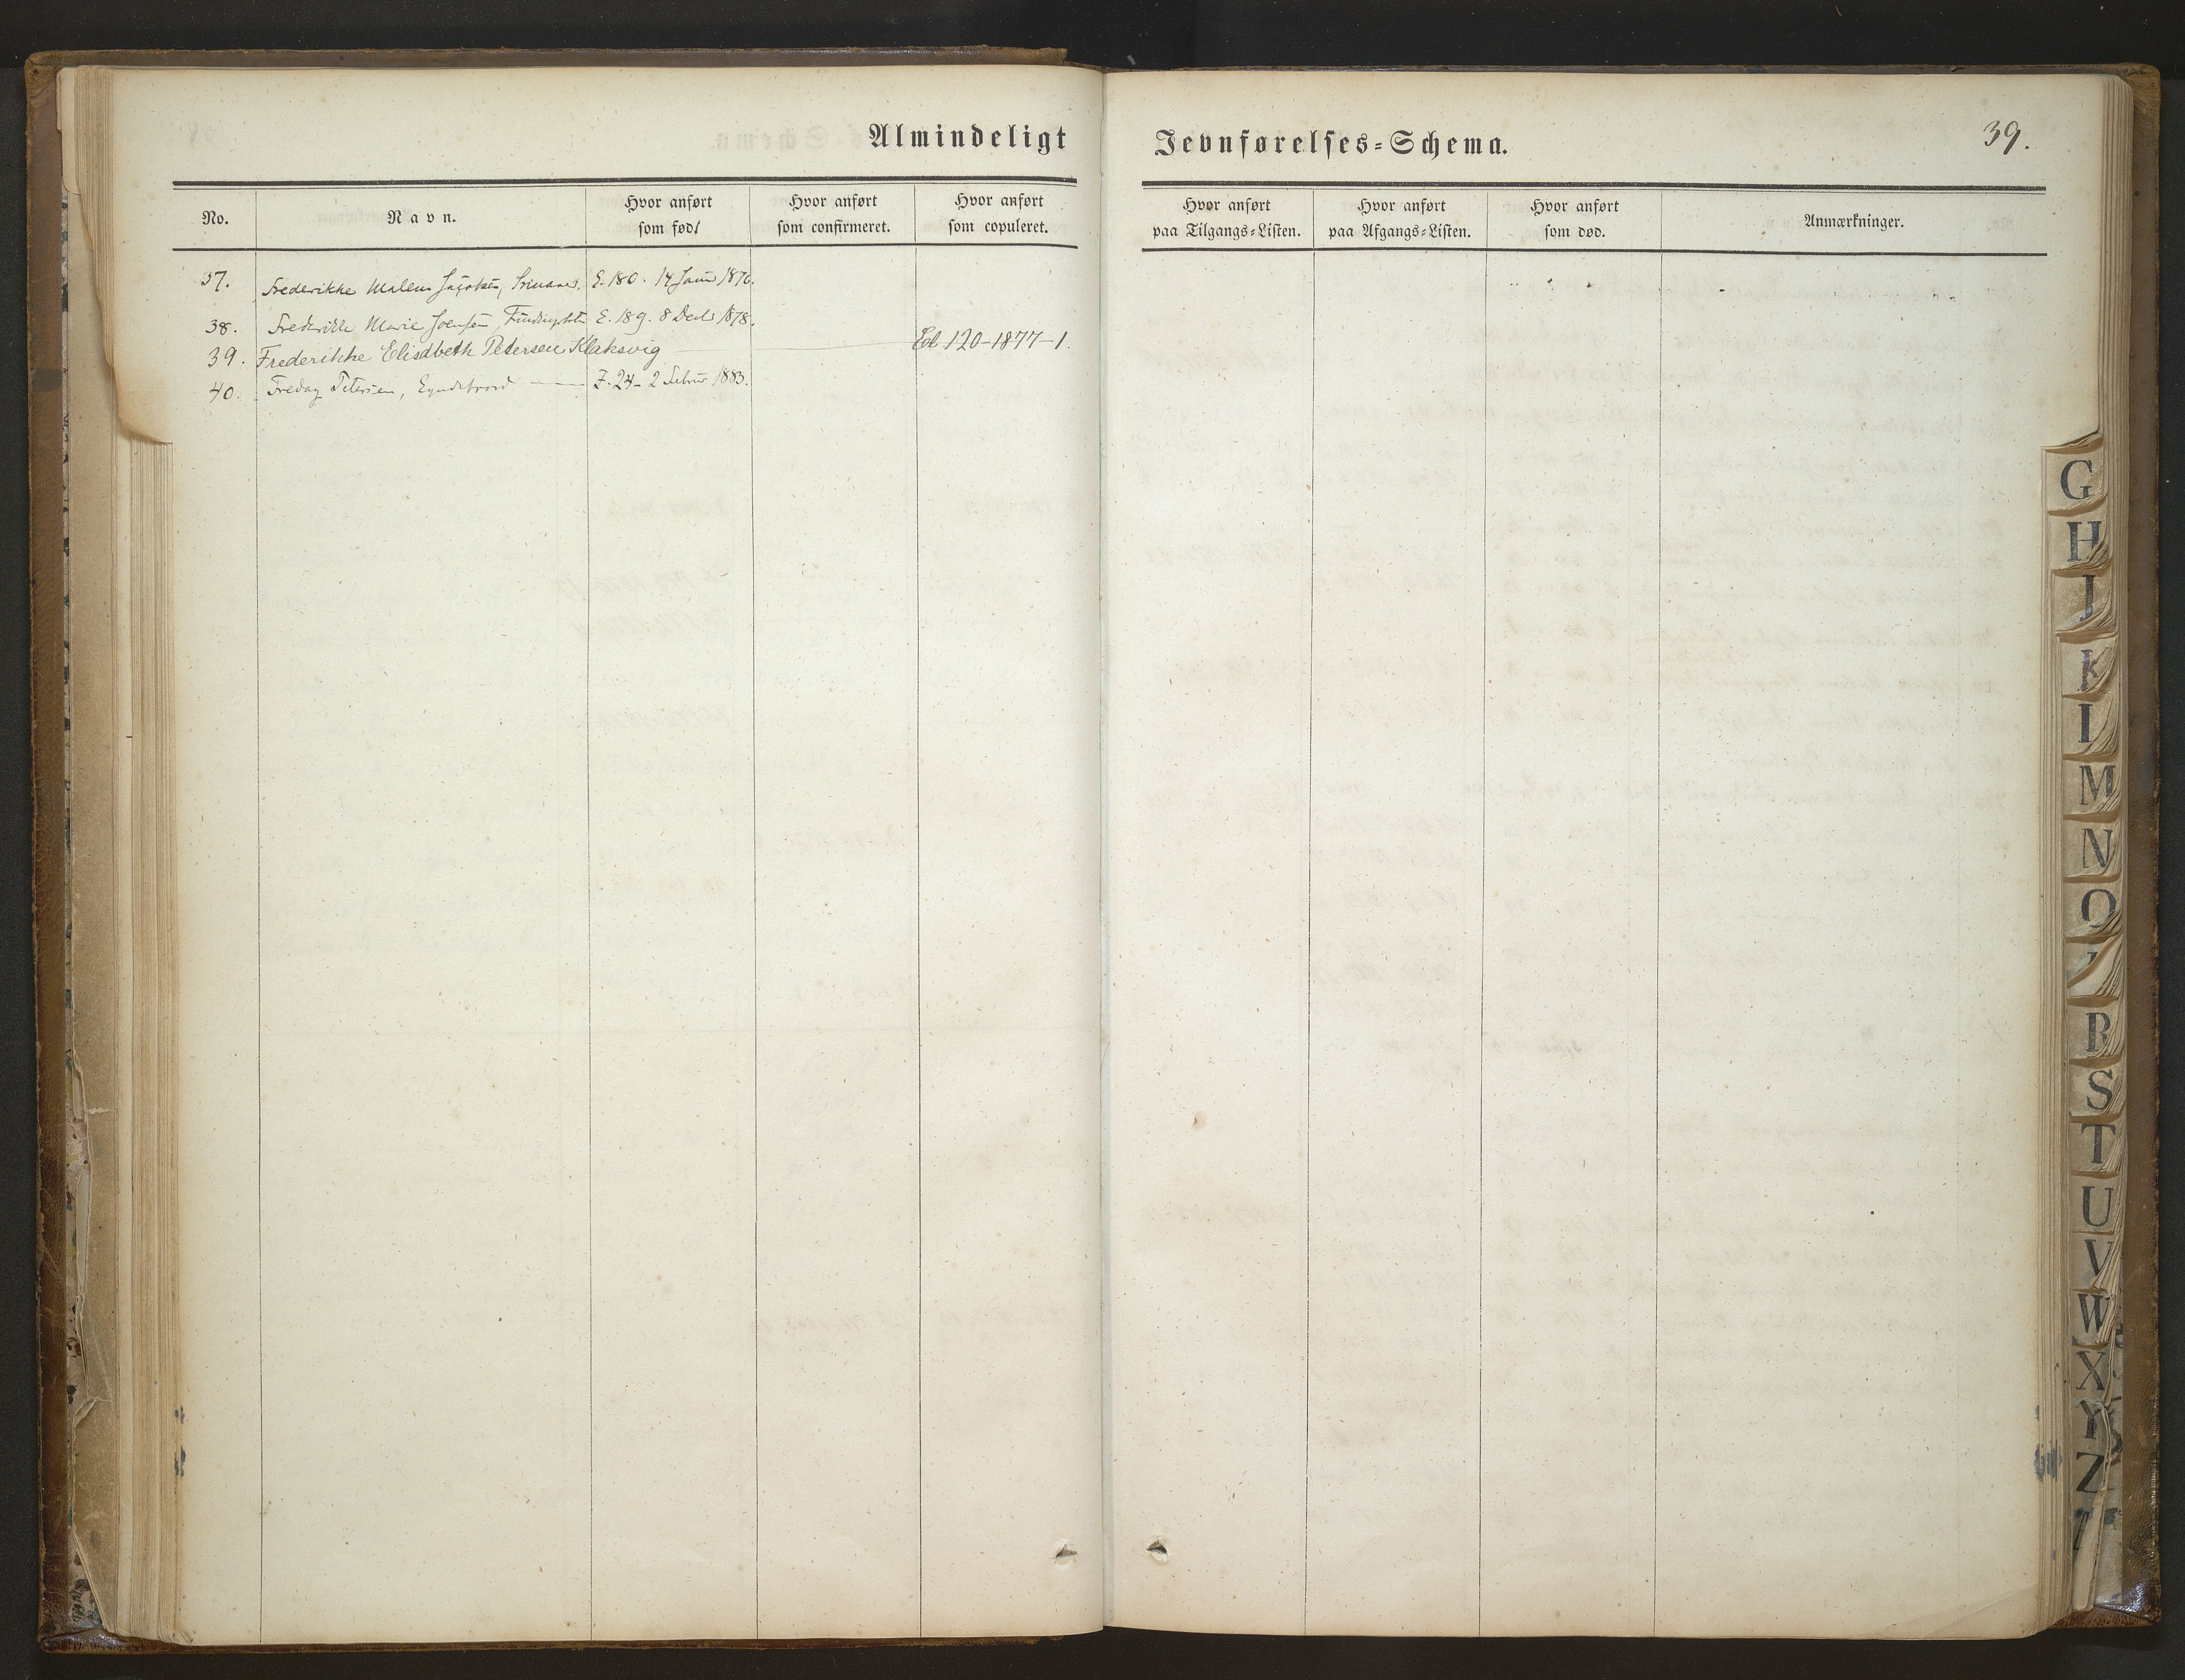 Almindeligt Jevnførelses=Schema.
39.
No. Navn. Hvor anført som født Hvor anført som confirmeret. Hvor anført som copuleret. Hvor anført paa Tilgangs=Listen. Hvor anført paa Afgangs=Listen. Hvor anført som død. Anmærkninger.
37. Frederikke Malene E. 180. 14 1876.
38. Frederikke Marie Joensen, E. 189. 8 Decbr 1878.
39. Frederikke Elisabeth Petersen Klaksvig 120-1877-1.
40. Freday Petersen, 24- 2 Febru 1883.
G
H
I
K
L
M
N
O
R
S
T
U
V
W
X
Y
Z